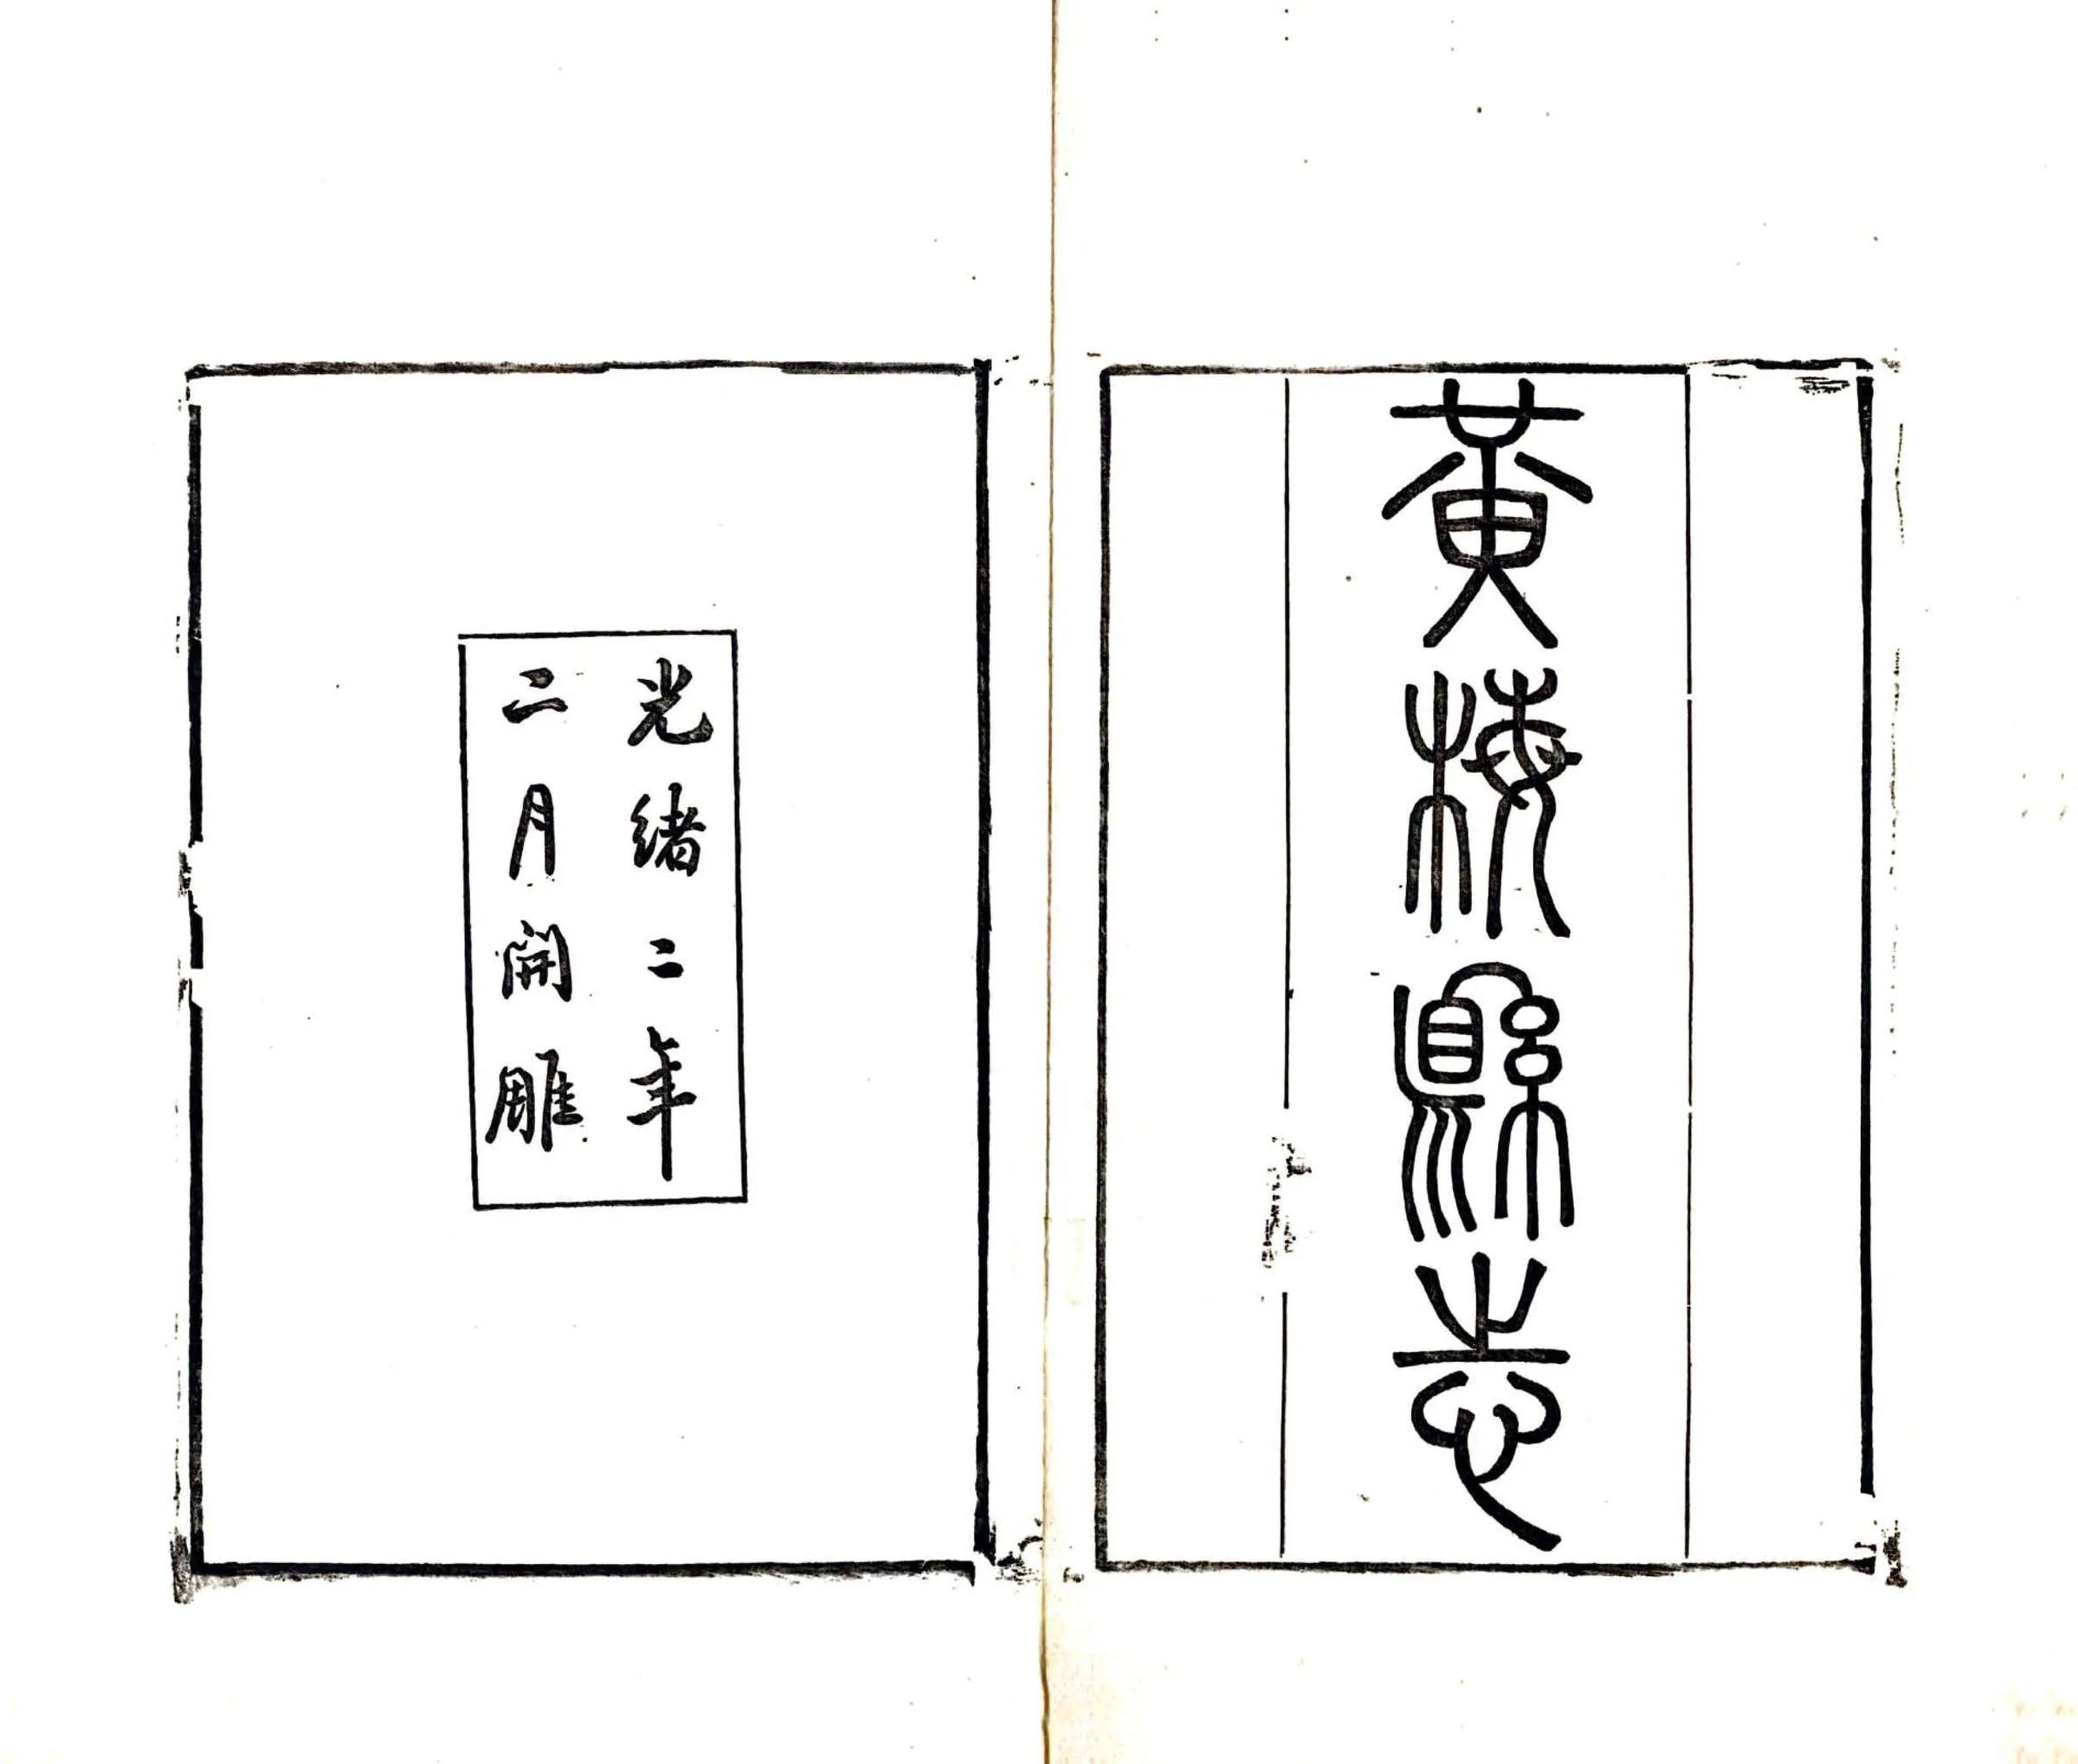 黃梅縣志
光緒二年
二月開雕